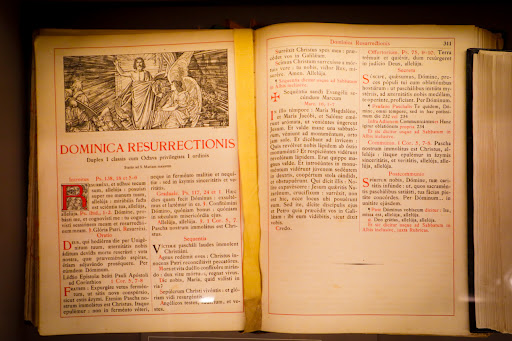 DOMINICA RESURRECTIONIS
Duplex I classis cum Octava privilegiata I ordinis
Statio ad S. Mariam majorem
Introitus. Ps. 138, 18 et 5-6
Resurrexi, et adhuc tecum
sum, allelúja: posuísti
super me manum tuam,
allelúja: mirábilis facta
est sciéntia tua, allelúja,
allelúja. Ps. ibid., 1-2. Dómine, probásti
me, et cognovísti me: tu cognovísti
sessiónem meam et resurrectiónem
meam. ℣. Glória Patri. Resurréxi.
Oratio
Deus, qui hodiérna die per Unigénitum
tuum, æternitátis nobis
áditum devícta morte reserásti: vota
nostra, quæ præveniéndo aspíras,
étiam adjuvándo proséquere. Per
eúmdem Dóminum.
Léctio Epístolæ beáti Pauli Apóstoli
ad Corínthios
I Cor. 5, 7-8
Fratres: Expurgáte vetus ferméntum,
ut sitis nova conspérsio,
sicut estis ázymi. Etenim Pascha nostrum
immolátus est Christus. Itaque
epulémur: non in ferménto véteri,
neque in ferménto malítiæ et nequítiæ:
sed in ázymis sinceritátis et veritátis.
Graduale. Ps. 117, 24 et 1. Hæc
dies quam fecit Dóminus: exsultémus
et lætémur in ea. ℣. Confitémini
Dómino, quóniam bonus: quóniam
in sǽculum misericórdia ejus.
Allelúja, allelúja. ℣. I Cor. 5, 7.
Pascha nostrum immolátus est Christus.
Sequentia
Víctimæ pascháli laudes ímmolent
Christiáni.
Agnus redémit oves: Christus ínnocens
Patri reconciliávit peccatóres.
Mors et vita duéllo conflixére mirándo:
dux vitæ mórtuus, regnat vivus.
Dic nobis, María, quid vidísti in
via?
Sepúlcrum Christi vivéntis: et glóriam
vidi resurgéntis.
Angélicos testes, sudárium, et vestes.
Dominica Resurrectionis
311
Surréxit Christus spes mea: præcédet
vos in Galilǽam.
Scimus Christum surrexísse a mórtuis
vere: tu nobis, victor Rex, miserére.
Amen. Allelúja.
Sequéntia dicitur usque ad Sabbatum
in Albis inclusive.
✠ Sequéntia sancti Evangélii secúndum
Marcum
Marc. 16, 1-7
In illo témpore: María Magdaléne,
et María Jacóbi, et Salóme emérunt
arómata, ut veniéntes úngerent
Jesum. Et valde mane una sabbatórum,
véniunt ad monuméntum, orto
jam sole. Et dicébant ad ínvicem:
Quis revólvet nobis lápidem ab óstio
monuménti? Et respiciéntes vidérunt
revolútum lápidem. Erat quippe magnus
valde. Et introëúntes in monuméntum
vidérunt júvenem sedéntem
in dextris, coopértum stola cándida,
et obstupuérunt. Qui dicit illis: Nolíte
expavéscere: Jesum quǽritis Nazarénum,
crucifíxum: surréxit, non
est hic, ecce locus ubi posuérunt
eum. Sed ite, dícite discípulis ejus
et Petro quia præcédit vos in Galilǽam:
ibi eum vidébitis, sicut dixit
vobis.
Credo.
Offertorium. Ps. 75, 9-10. Terra
trémuit et quiévit, dum resúrgeret
in judício Deus, allelúja.
Secreta
Súscipe, quǽsumus, Dómine, preces
pópuli tui cum oblatiónibus
hostiárum: ut paschálibus initiáta mystériis,
ad æternitátis nobis medélam,
te operánte, profíciant. Per Dóminum.
Communio. I Cor. 5, 7-8. Pascha
nostrum immolátus est Christus, allelúja:
ítaque epulémur in ázymis
sinceritátis, et veritátis, allelúja, allelúja,
allelúja.
Postcommunio
Spíritum nobis, Dómine, tuæ caritátis
infúnde: ut, quos sacraméntis
paschálibus satiásti, tua fácias pietáte
concórdes. Per Dóminum... in unitáte
ejúsdem.